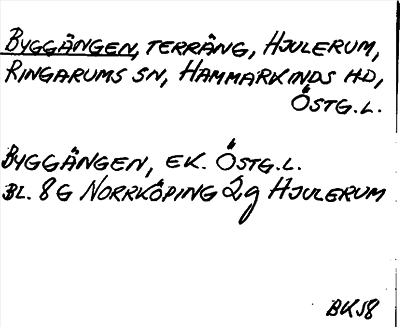 BYGGÄNGEN, TERRÄNG, HJULERUM,
RINGARUMS SN, HAMMARKINDS HD,
ÖSTG.L.
BYGGÄNGEN, EK. ÖSTG.L.
BL. 8G NORRKÖPING 2g HJULERUM
BK58